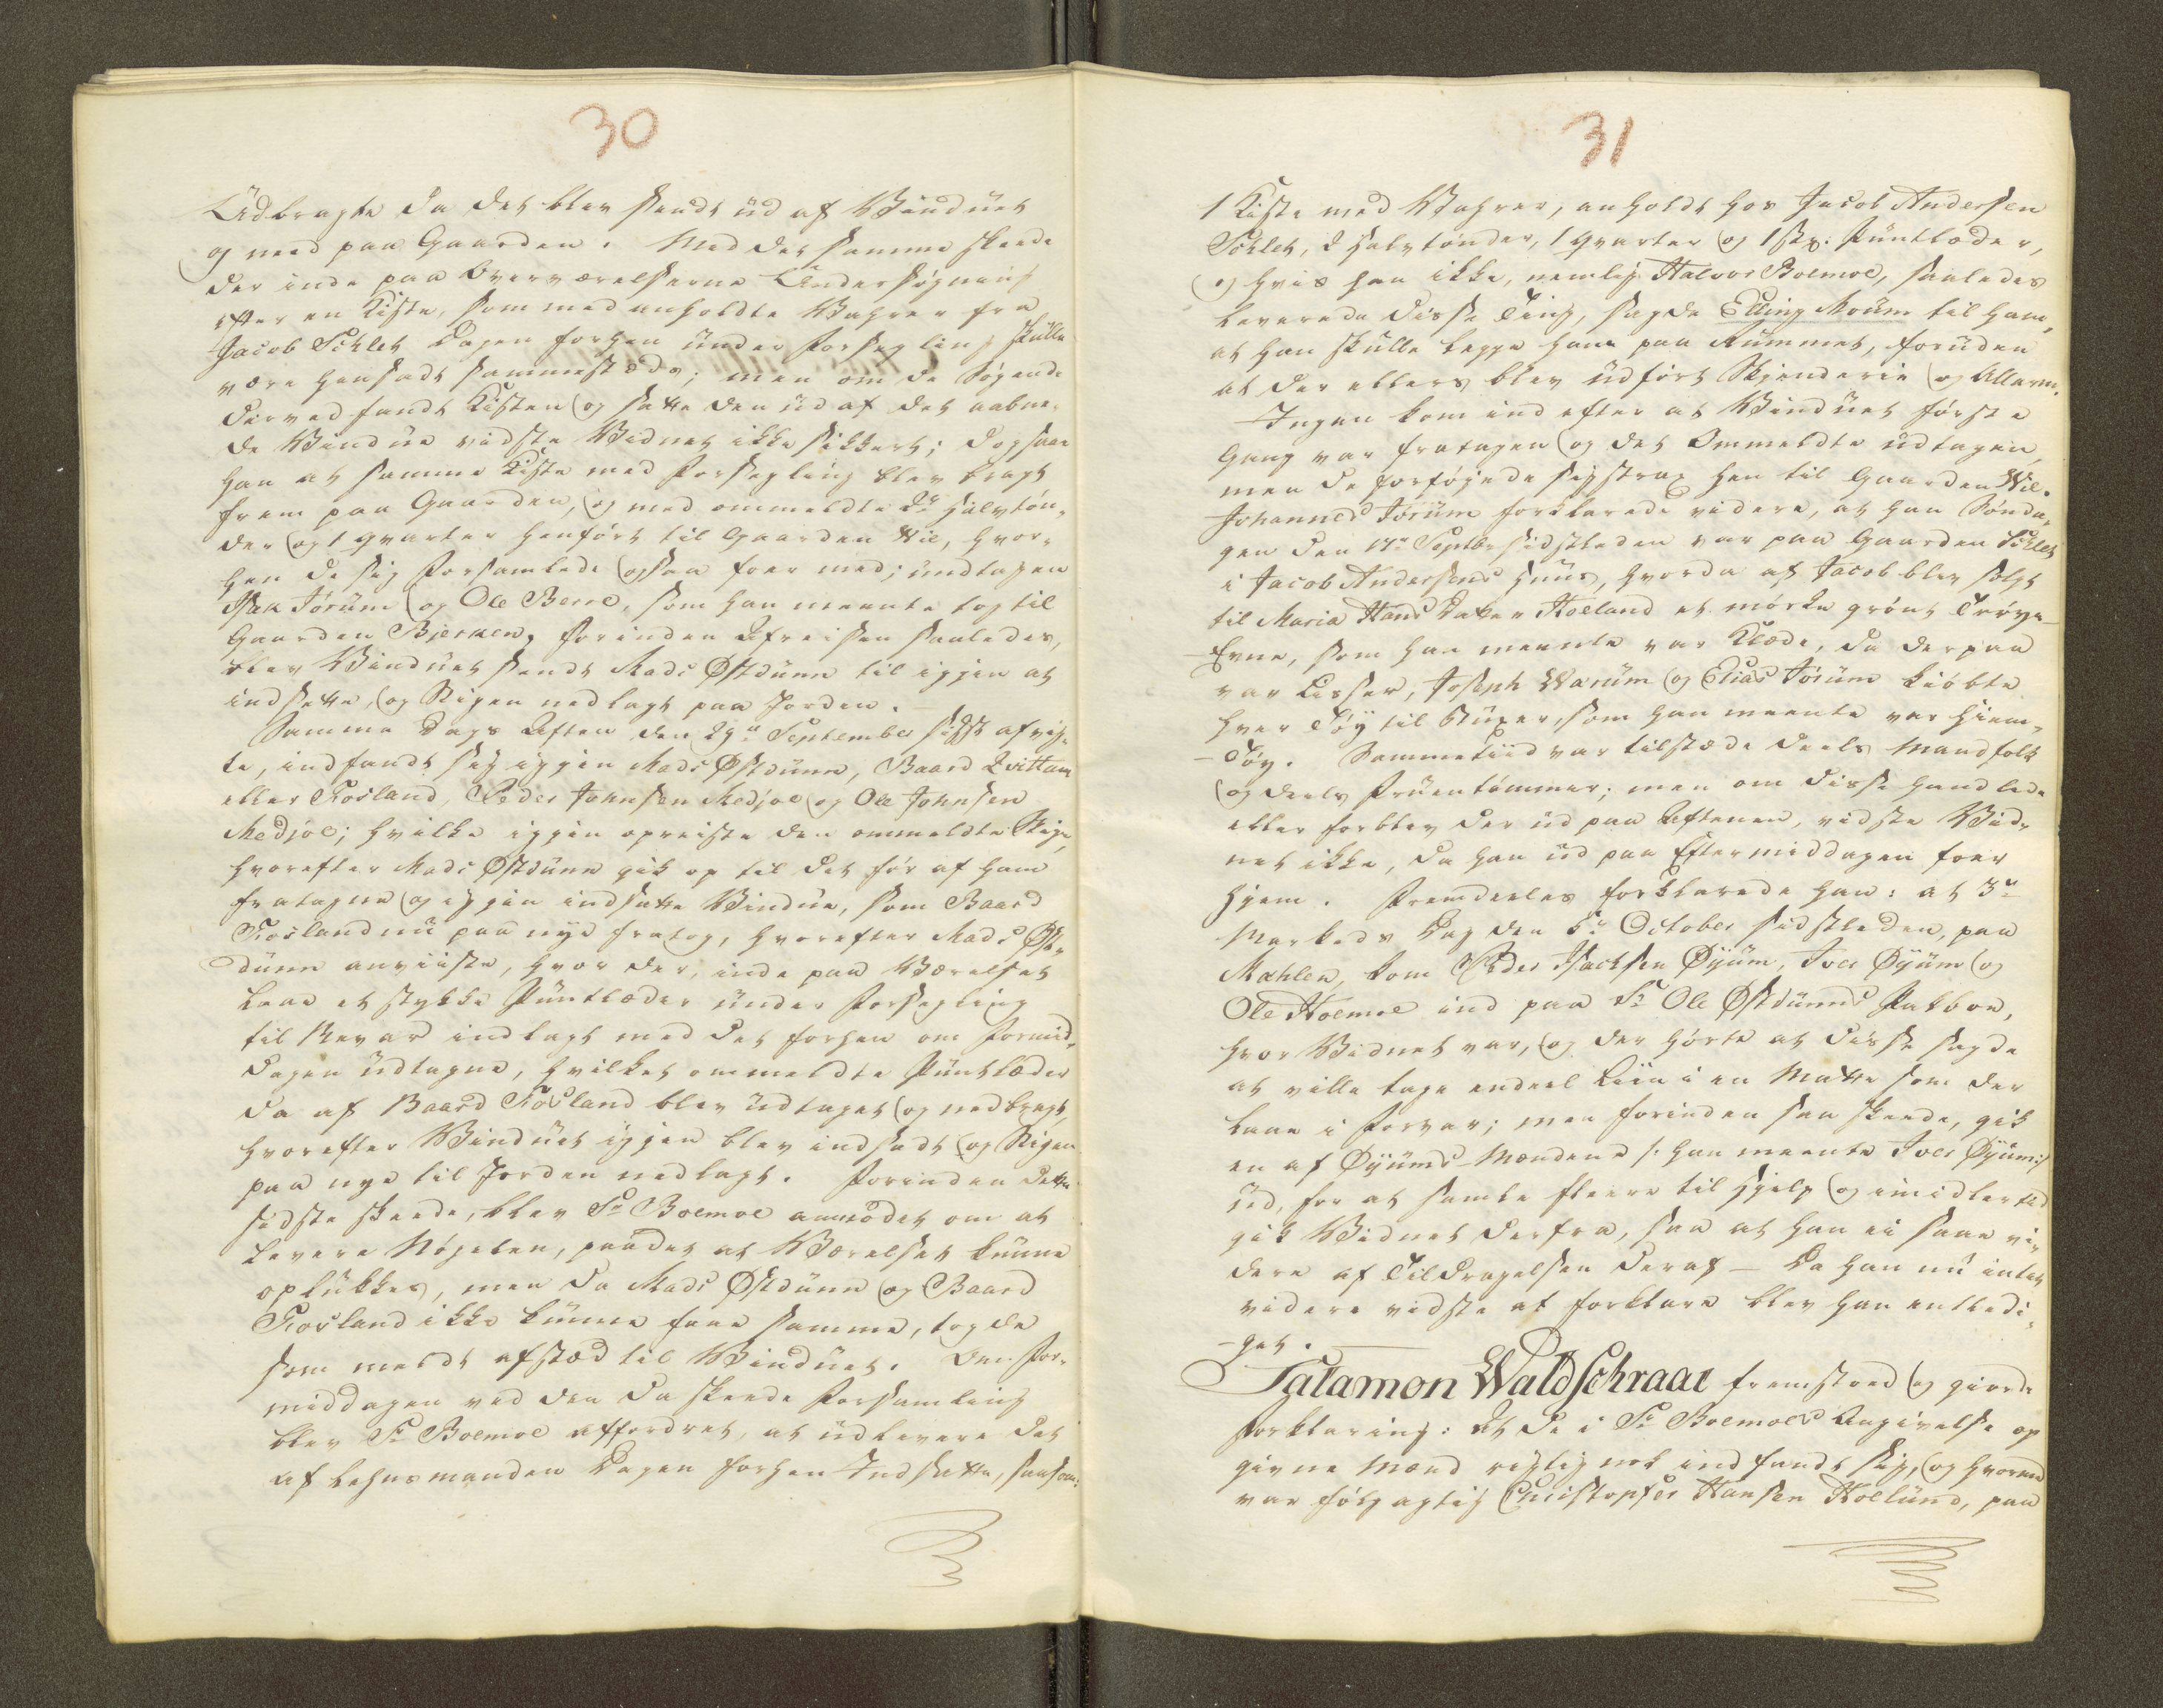 30
Udbragte da det blev sendt ud af Vinduet
og need paa Gaarden. Med det samme skeede
der inde paa Overværelserne Undersøgning
efter en Kiste, som med anholdte Vahrer fra
Jacob Schlet Dagen forhen under Forsegling skulle
være hensadt sammesteds; men om de Søgende
derved fandt Kisten og satte den ud af det aabne-
de Vindue vidste Vidnet ikke sikkert; dog saae
han at samme Kiste med Forsegling blev bragt
frem paa Gaarden, og med ommeldte 2de Halvtøn-
der og 1 qvarter henført til Gaarden Wie, hvor-
hen de sig forsamlede ogsaa foer med; undtagen
Isak Jørüm og Ole Berre, som han meente tog til
Gaarden Bjerken, forinden Afreisen saaledes,
blev Vinduet sendt Mads Østdünn til igjen at
indsætte, og Stigen nedlagt paa Jorden.
Samme Dags Aften den 29de September sidst afvig-
te, indfandt sig igjen Mads Østdünn, Baard Qvittum
eller Fosland, Peder Johnsen Medjoe og Ole Johnsen
Medjoe; hvilke igjen opreiste den ommeldte Stige,
hvorefter Mads Østdünn gik op til det før af ham
fratagne og igjen indsatte Vindue, som Baard
Fosland nu paa nye fratog, hvorefter Mads Øst-
dünn anviiste, hvor der, inde paa Værelset
laae et stykke Püntlæder under Forsegling
til Bevar indlagt med det forhen om Formid-
dagen udtagne, hvilket ommeldte Püntlæder
da af Baard Fosland blev udtaget og nedbragt,
hvorefter Vinduet igjen blev indsadt og Stigen
paa nye til Jorden nedlagt. Forinden dette
sidste skeede, blev Sr Boemoe anmodet om at
levere Nøgelen, paadet at Værelset kunne
oplukkes, men da Mads Østdünn og Baard
Fosland ikke kunne faae samme, tog de
som meldt afsted til Vinduet. Om For-
middagen ved den da skeede Forsamling
blev Sr Boemoe affordret, at udlevere det
af Lehnsmanden Dagen forhen Indsatte, saasom:
31
1 Kiste med Vahrer, anholdt hos Jacob Andersen
Schlet, 2 Halvtønder, 1 qvarter og 1 stk: Püntlæder,
og hvis han ikke, nemlig Halvor Boemoe, saaledes
leverede disse Ting, sagde Elling Moüm til ham,
at han skulle legge ham paa Rummet, foruden
at der ellers blev udført Skjenderie og Allarm.
Ingen kom ind efter at Vinduet første
Gang var fratagen og det Ommeldte udtagen,
men de forføjede sig strax hen til Gaarden Wie.
Johannes Jørüm forklarede videre, at han Sønda-
gen den 17de Septbr sidstleden var paa Gaarden Schlet
i Jacob Andersens Huus, hvorda af Jacob blev solgt
til Maria Hans Datter Holland et mørke grønt Trøye
Evne, som han meente var Klæde, da der paa
var Lisser, Joseph Warüm og Elias Jørüm kiøbte
hver Tøy til Büxer, som han meente var Hiem-
Tøy. Sammetiid var tilstæde deels Mandfolk
og deels Fruentømmer; men om disse handlede
eller forblev der ud paa Aftenen, vidste Vid-
net ikke, da han ud paa Eftermiddagen foer
hjem. Fremdeeles forklarede han: at 3de
Markeds Dag den 5te October sidstleden, paa
Mæhlen, kom Peder Isachsen Øyüm, Iver Øyüm og
Ole Hoemoe ind paa Sr Ole Østdünns Pakboe,
hvor Vidnet var, og der hørte at disse sagde
at ville tage endeel Liin i en Matte som der
laae i Forvar; men forinden saa skeede, gik
en af Øyüms-Mændene /: han meente Iver Øyüm :/
ud, for at samle fleere til Hjelp og imidlertid
gik Vidnet derfra, saa at han ei saae vi-
dere af Tildragelsen deraf – Da han nu intet
videre vidste at forklare blev han entledi-
get.
Salamon Waldschraae fremstoed og giorde
Forklaring: At de i Sr Boemoes Angivelse op
givne Mænd rigtig nok indfandt sig, og hvormed
var følgagtig Christopfer Hansen Hoelünd, paa